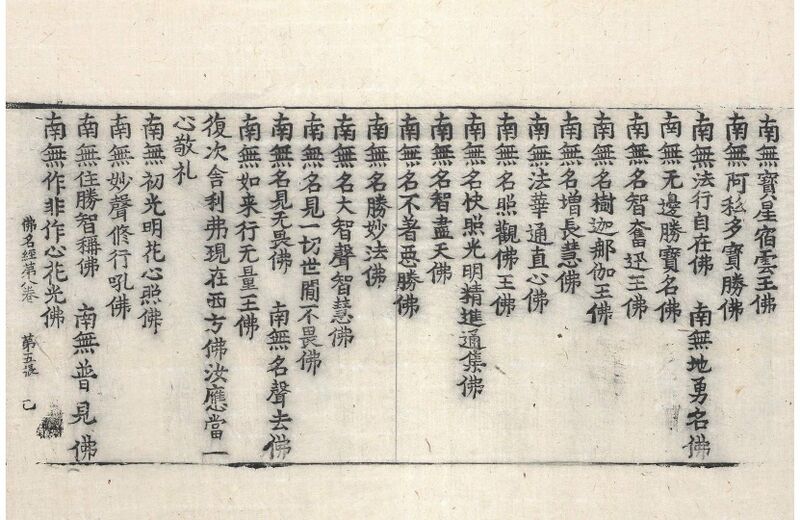 南無寳星宿雲王佛
南無阿私多寳勝佛
南無法行自在佛　南無地勇名佛
南無无邊勝寳名佛
南無名智奮迅王佛
南無名樹迦那伽王佛
南無名增長慧佛
南無法華通直心佛
南無名照觀佛王佛
南無名快照光明精進通集佛
南無名智盡天佛
南無名不著惡勝佛
南無名勝妙法佛
南無名大智聲智慧佛
南無名見一切世間不畏佛
南無名見无畏佛　南無名聲去佛
南無如来行无量王佛
復次舍利弗現在西方佛汝應當一
心敬礼
南無初光明花心照佛
南無妙聲修行吼佛
南無住勝智稱佛　南無普見佛
南無作非作心花光佛
佛名經第八卷　第五張　乙